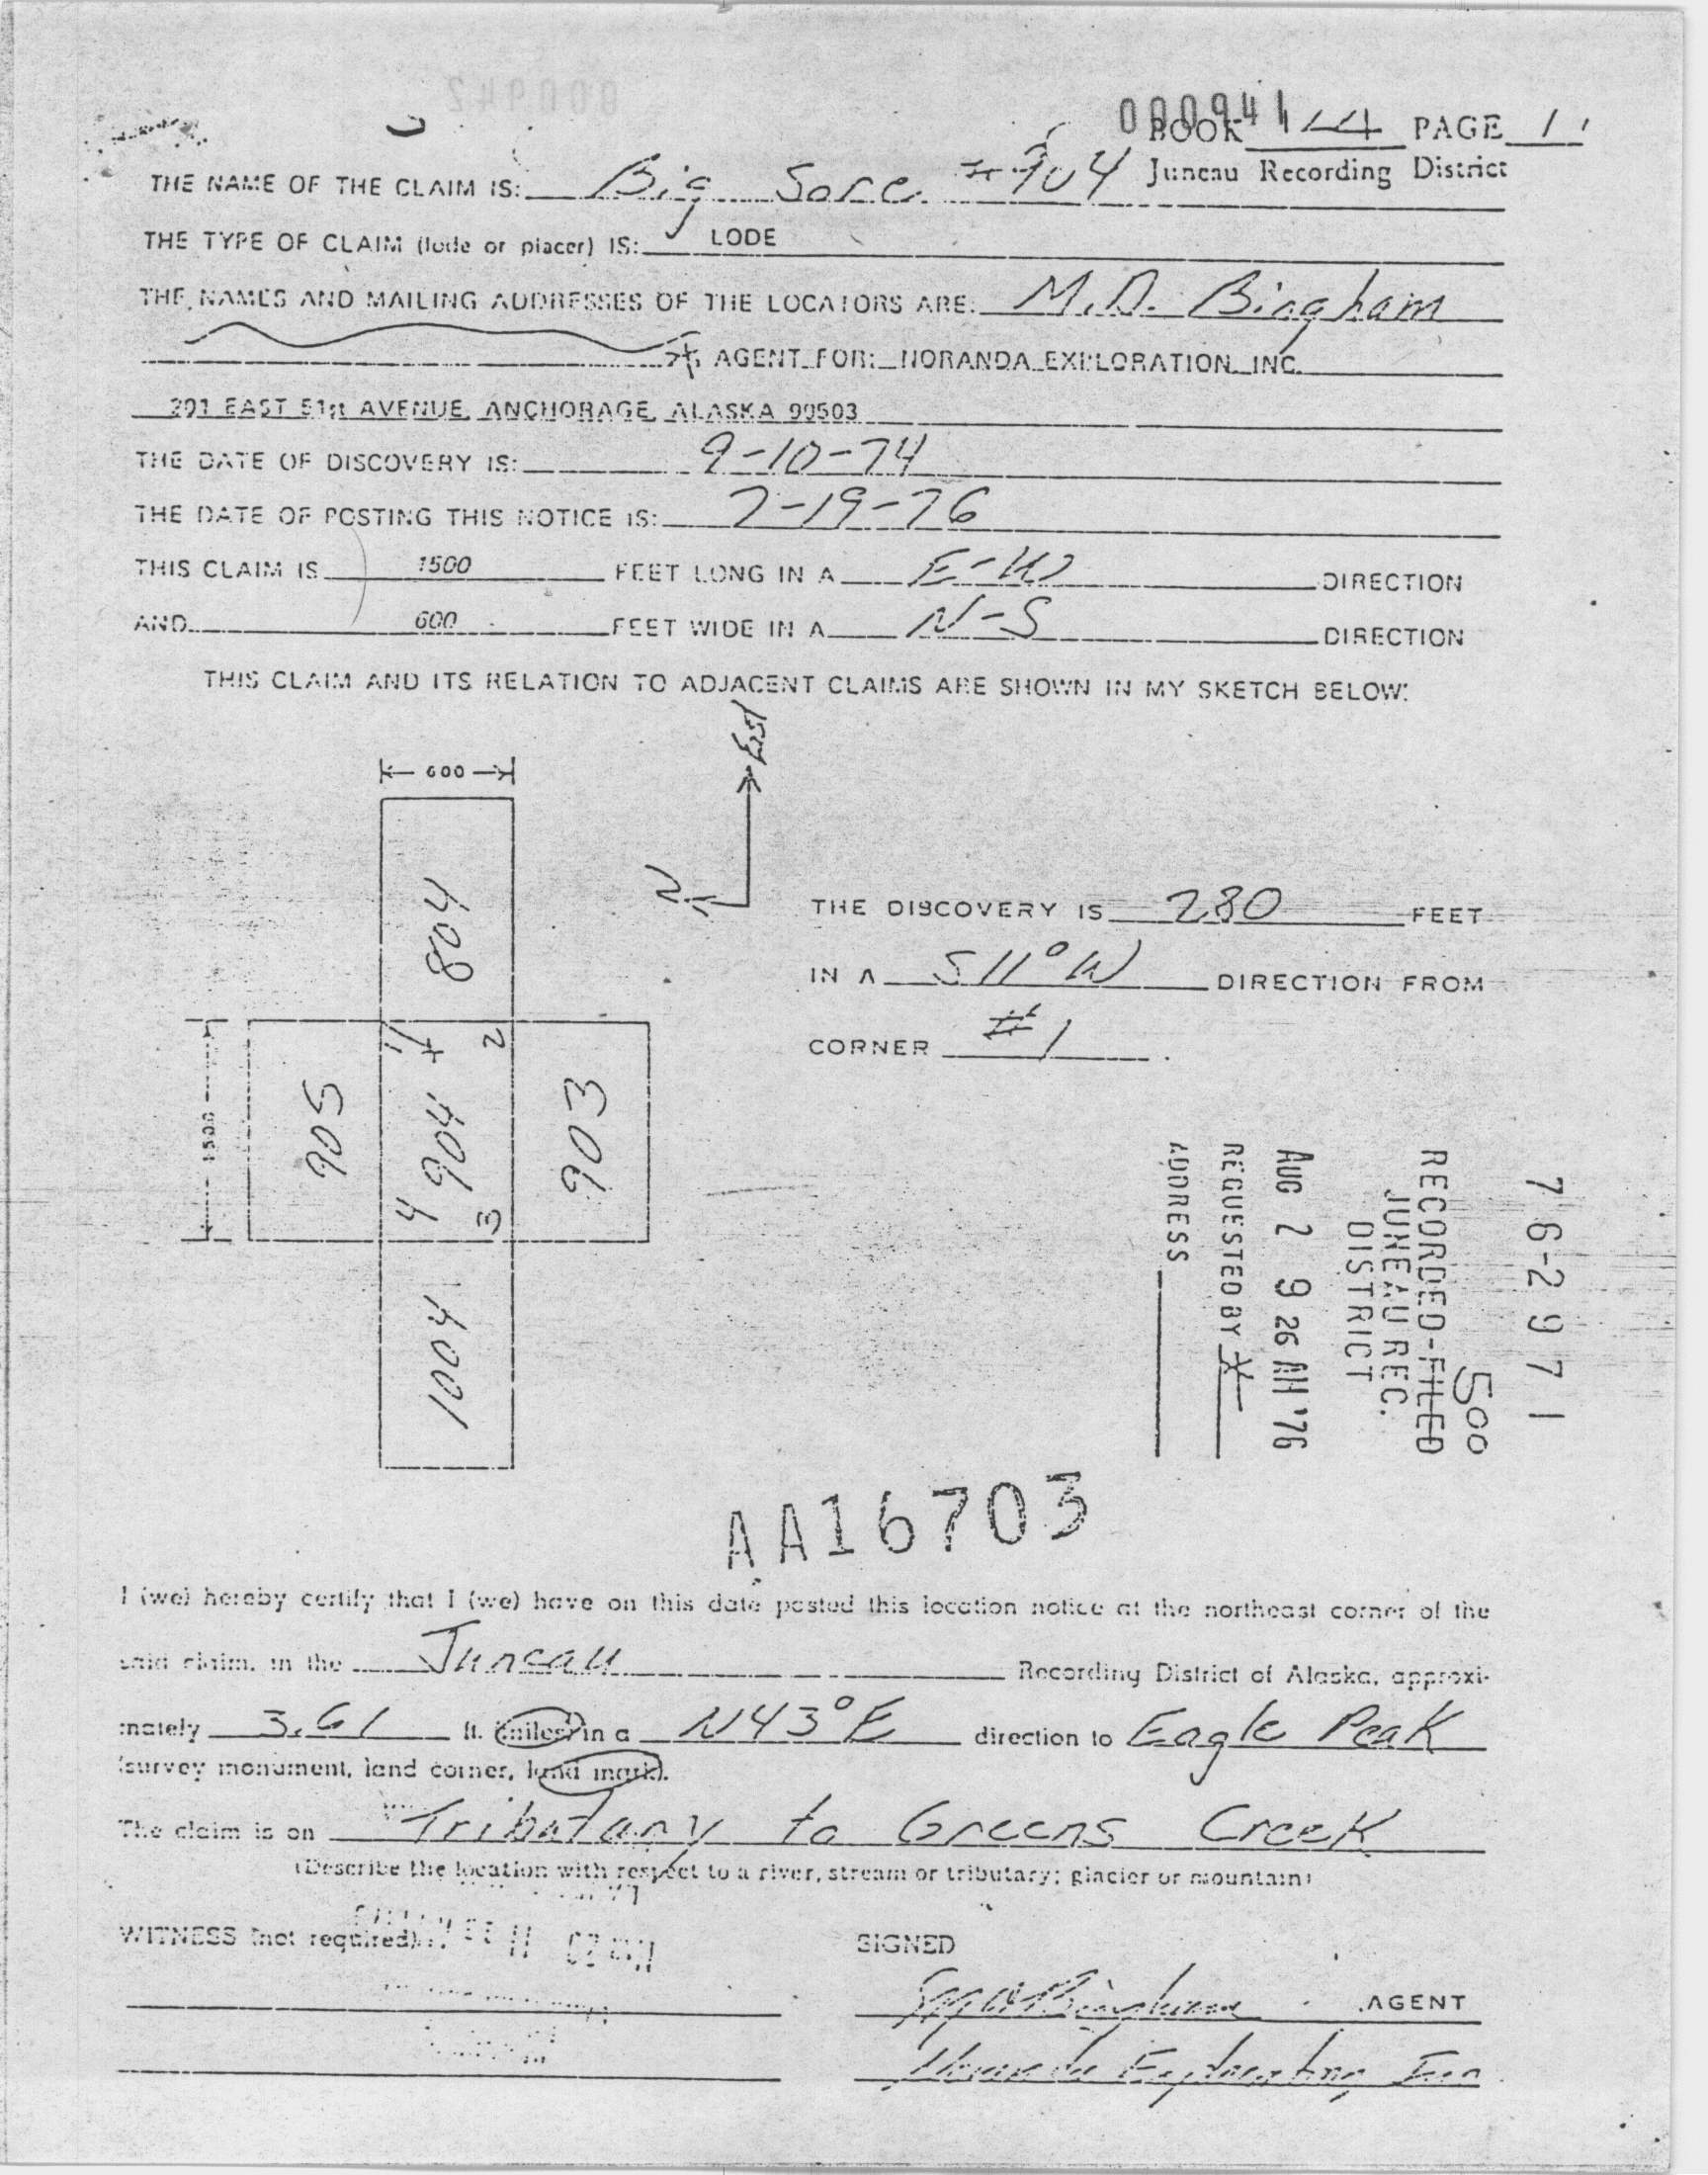 000941
BOOK 144 PAGE 11
Juneau Recording District
THE NAME OF THE CLAIM IS: Big Sore #904
THE TYPE OF CLAIM (lode or placer) IS: LODE
THE NAMES AND MAILING ADDRESSES OF THE LOCATORS ARE: M.D. Bingham
AGENT FOR: NORANDA EXPLORATION INC.
201 EAST 51st AVENUE, ANCHORAGE, ALASKA 99503
THE DATE OF DISCOVERY IS: 9-10-74
THE DATE OF POSTING THIS NOTICE IS: 7-19-76
THIS CLAIM IS 1500 FEET LONG IN A E-W DIRECTION
AND 600 FEET WIDE IN A N-S DIRECTION
THIS CLAIM AND ITS RELATION TO ADJACENT CLAIMS ARE SHOWN IN MY SKETCH BELOW:
East
600
N
804
THE DISCOVERY IS 280 FEET
IN A S 11° W DIRECTION FROM
CORNER #1
1500
905
1 2
904
4 3
903
1004
76-2971
500
RECORDED-FILED
JUNEAU REC.
DISTRICT
AUG 2 9 26 AM '76
REQUESTED BY
ADDRESS
AA16703
I (we) hereby certify that I (we) have on this date posted this location notice at the northeast corner of the
said claim, in the Juneau Recording District of Alaska, approxi-
mately 3.61 ft. (miles) in a N43°E direction to Eagle Peak
(survey monument, land corner, land mark).
The claim is on Tributary to Greens Creek
(Describe the location with respect to a river, stream or tributary; glacier or mountain)
WITNESS (not required)
SIGNED
Bingham AGENT
Noranda Exploration, Inc